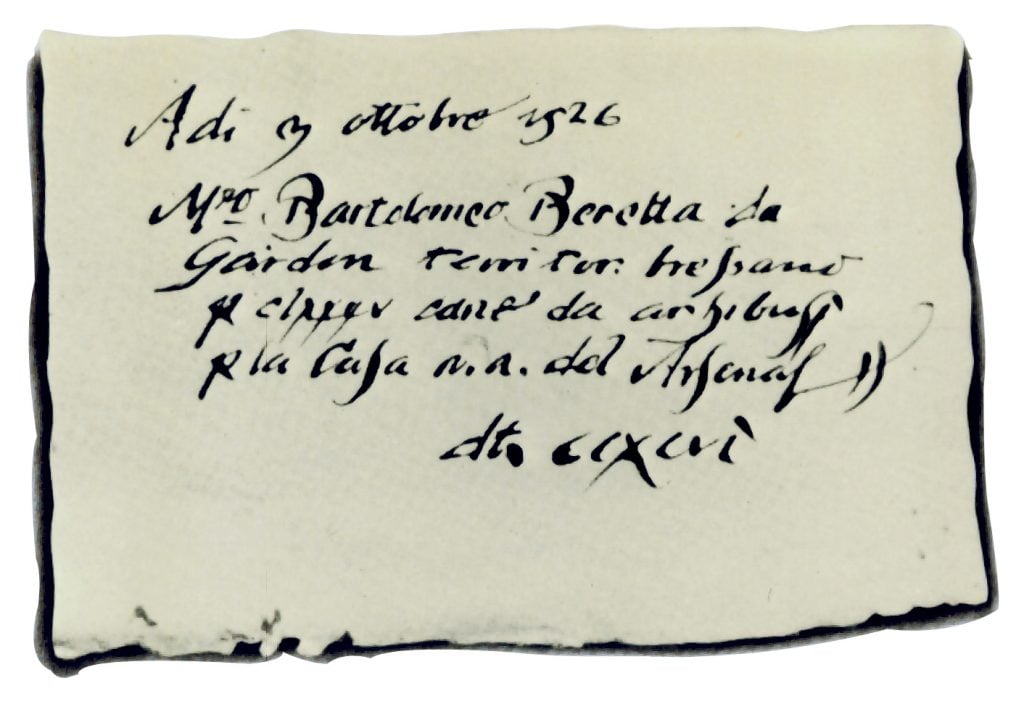 Adi 3 ottobre 1526
Mro. Bartolomeo Beretta da
Gardon territor: bressano
p clxxxv cane da archibussi
p la Casa n.n. del Arsenal
dti cclxxxxvi